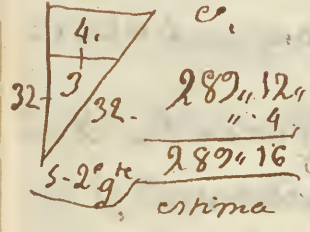 e.
4.
3
32- 32-
289,, 12,,
,, 4,
289,, 16
5-2e gte
estima